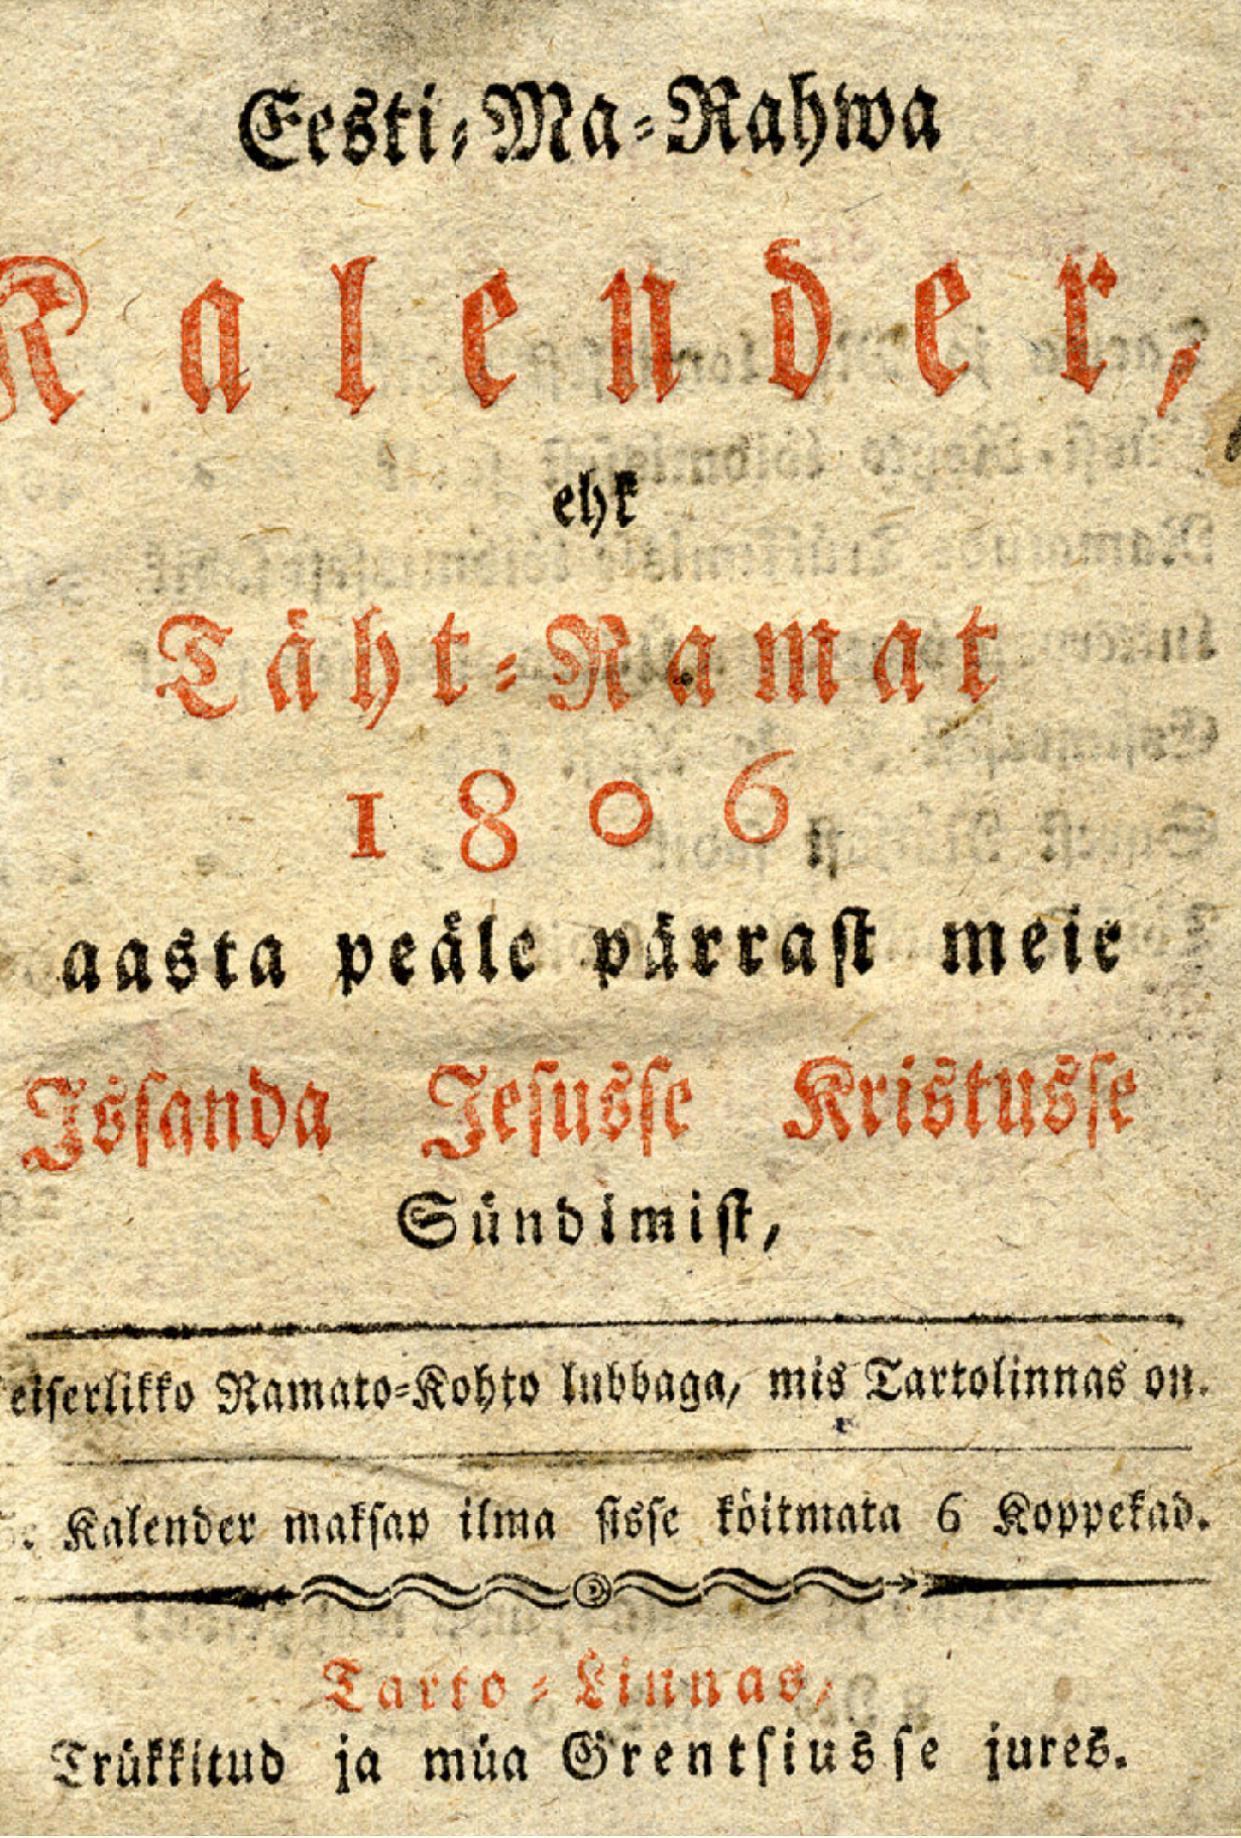 Eesti-Ma-Rahwa
Kalender,
ehk
Täht-Ramat
1806
aasta peäle pärrast meie
Issanda Jesusse Kristusse
Sündimist,
eiserlikko Ramato-Kohto lubbaga, mis Tartolinnas on.
Kalender maksap ilma sisse köitmata 6 Koppekad.
Tarto-Linnas,
Trükkitud ja müa Grentsiusse jures.